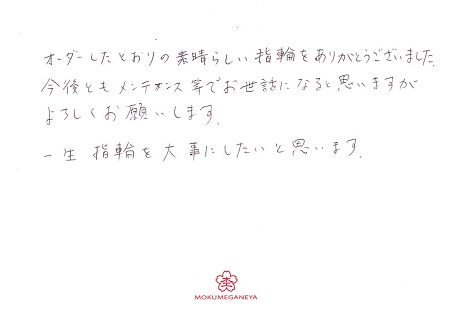 オーダーしたとおりの素晴らしい指輪をありがとうございました。
今後ともメンテナンス等でお世話になると思いますが
よろしくお願いします。
一生 指輪を大事にしたいと思います。
MOKUMEGANEYA